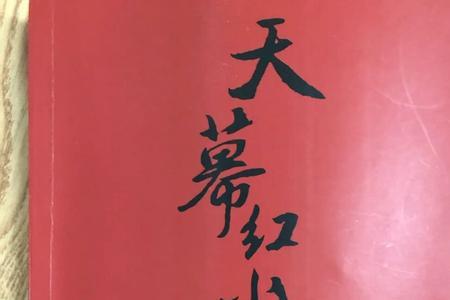 天幕红